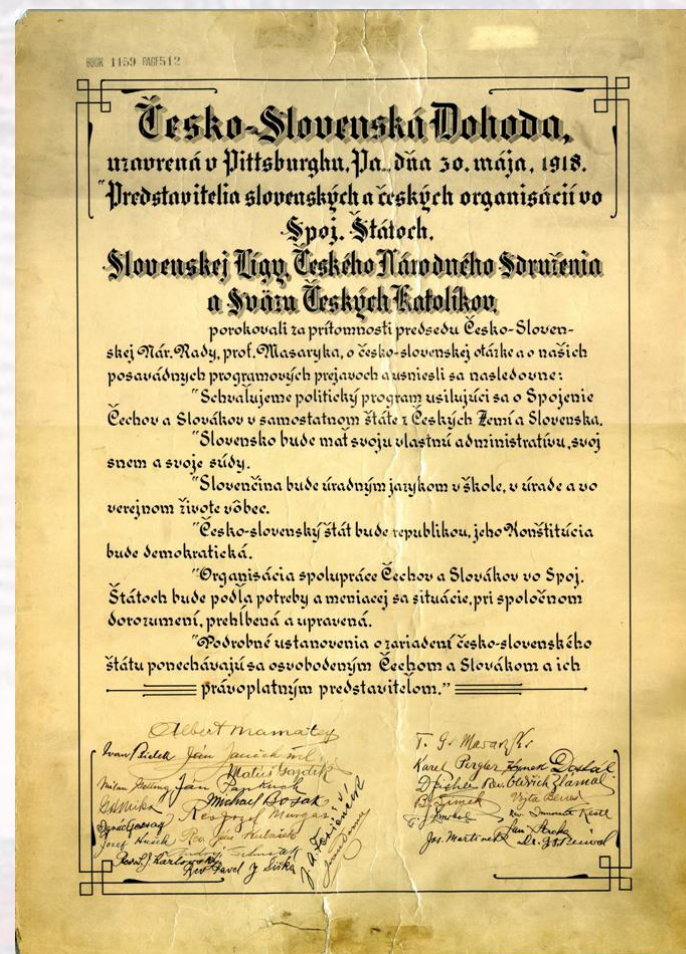 BOOK 1159 PAGE512
Česko-Slovenská Dohoda,
uzavrená v Pittsburghu, Pa., dňa 30. mája, 1918.
"Predstavitelia slovenských a českých organisácií vo
Spoj. Štátoch,
Slovenskej Lígy, Českého Národného Sdruženia
a Sväzu Českých Katolíkov,
porokovali za prítomnosti predsedu Česko-Sloven-
skej Nár. Rady, prof. Masaryka, o česko-slovenskej otázke a o našich
posavádnych programových prejavoch a usniesli sa nasledovne:
"Schvaľujeme politický program usilujúci sa o Spojenie
Čechov a Slovákov v samostatnom štáte z Českých Zemí a Slovenska.
"Slovensko bude mať svoju vlastnú administratívu, svoj
snem a svoje súdy.
"Slovenčina bude úradným jazykom v škole, v úrade a vo
verejnom živote vôbec.
"Česko-slovenský štát bude republikou, jeho Konštitúcia
bude demokratická.
"Organisácia spolupráce Čechov a Slovákov vo Spoj.
Štátoch bude podľa potreby a meniacej sa situácie, pri spoločnom
dorozumení, prehĺbená a upravená.
"Podrobné ustanovenia o zariadení česko-slovenského
štátu ponechávajú sa osvobodeným Čechom a Slovákom a ich
právoplatným predstaviteľom."
Albert Mamatey
T. G. Masaryk
Ivan Bielek Ján Janček ml.
Karel Pergler Hynek Dostál
Matúš Gazdík
Rev. Oldřich Zlámal
Milan Getting Ján Pankuch
Michael Bosak
Vojta Beneš
Rev Jozef Murgaš
Rev. Innocent Kestl
Ignác Gessay
Jozef Hušek Rev. Ján
Jan Straka
Jos. Martinek
Rev. Pavel J Šiška
J. A. Ferienčík